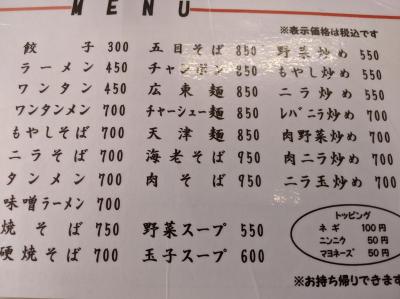 MENU
※表示価格は税込です
餃子 300
ラーメン 450
ワンタン 450
ワンタンメン 700
もやしそば 700
ニラそば 700
タンメン 700
味噌ラーメン 700
焼そば 750
硬焼そば 700
五目そば 850
チャンポン 850
広東麺 850
チャーシュー麺 850
天津麺 850
海老そば 950
肉そば 950
野菜スープ 550
玉子スープ 600
野菜炒め 550
もやし炒め 550
ニラ炒め 550
レバニラ炒め 700
肉野菜炒め 700
肉ニラ炒め 700
ニラ玉炒め 700
トッピング
ネギ 100円
ニンニク 50円
マヨネーズ 50円
※お持ち帰りできます